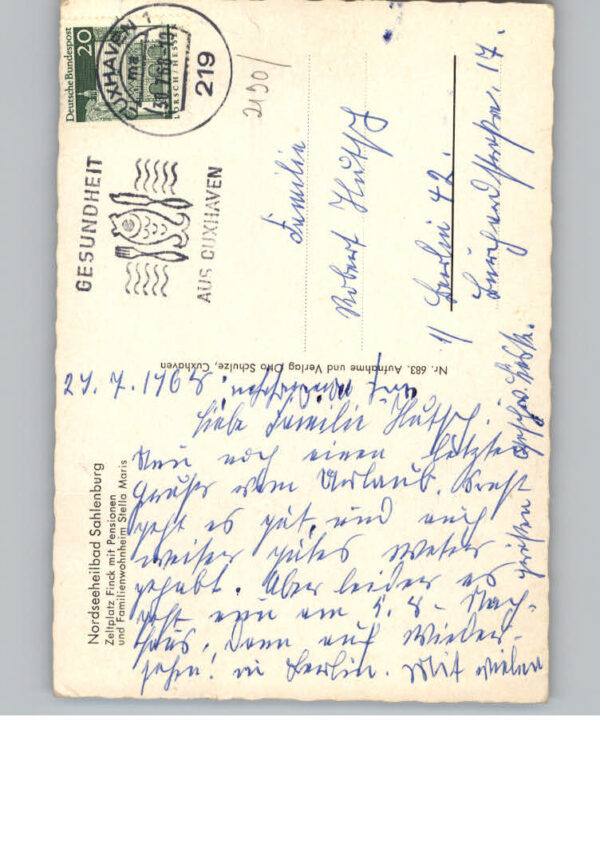 Deutsche Bundespost
20
LORSCH/HESSEN
CUXHAVEN 1
219
2190/
GESUNDHEIT
AUS CUXHAVEN
Familie
Robert Hutsch
1/ Berlin 42.
Burgemeisterstraße. 17.
Nr. 683. Aufnahme und Verlag Otto Schulze, Cuxhaven
Nordseeheilbad Sahlenburg
Zeltplatz Finck mit Pensionen
und Familienwohnheim Stella Maris
29. 7. 1968
Liebe Familie Hutsch.
Nun noch einen letzten
Gruß vom Urlaub. Sonst
geht es gut, und auch
weiter gutes Wetter
gehabt. Aber leider es
geht nun am 5. 8. Nach-
haus. Dann auf Wieder-
sehen! in Berlin. Mit vielen
Grüßen
auf Wiedersehen